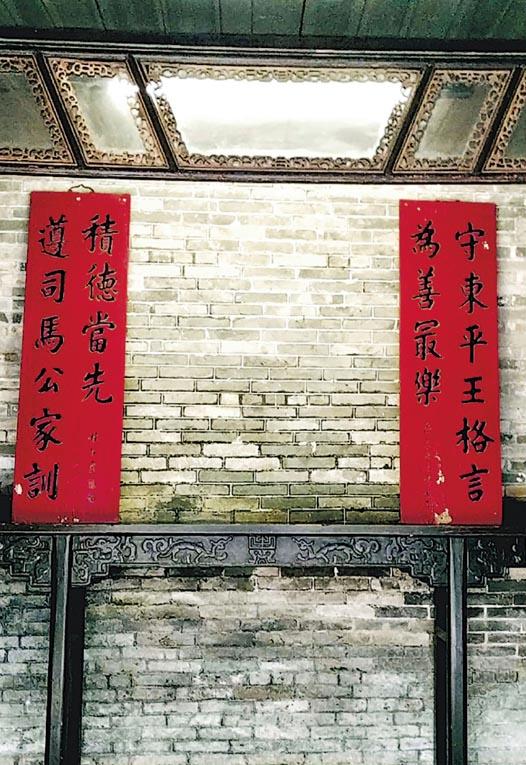 守東平王格言
為善最樂
遵司馬公家訓
積德當先